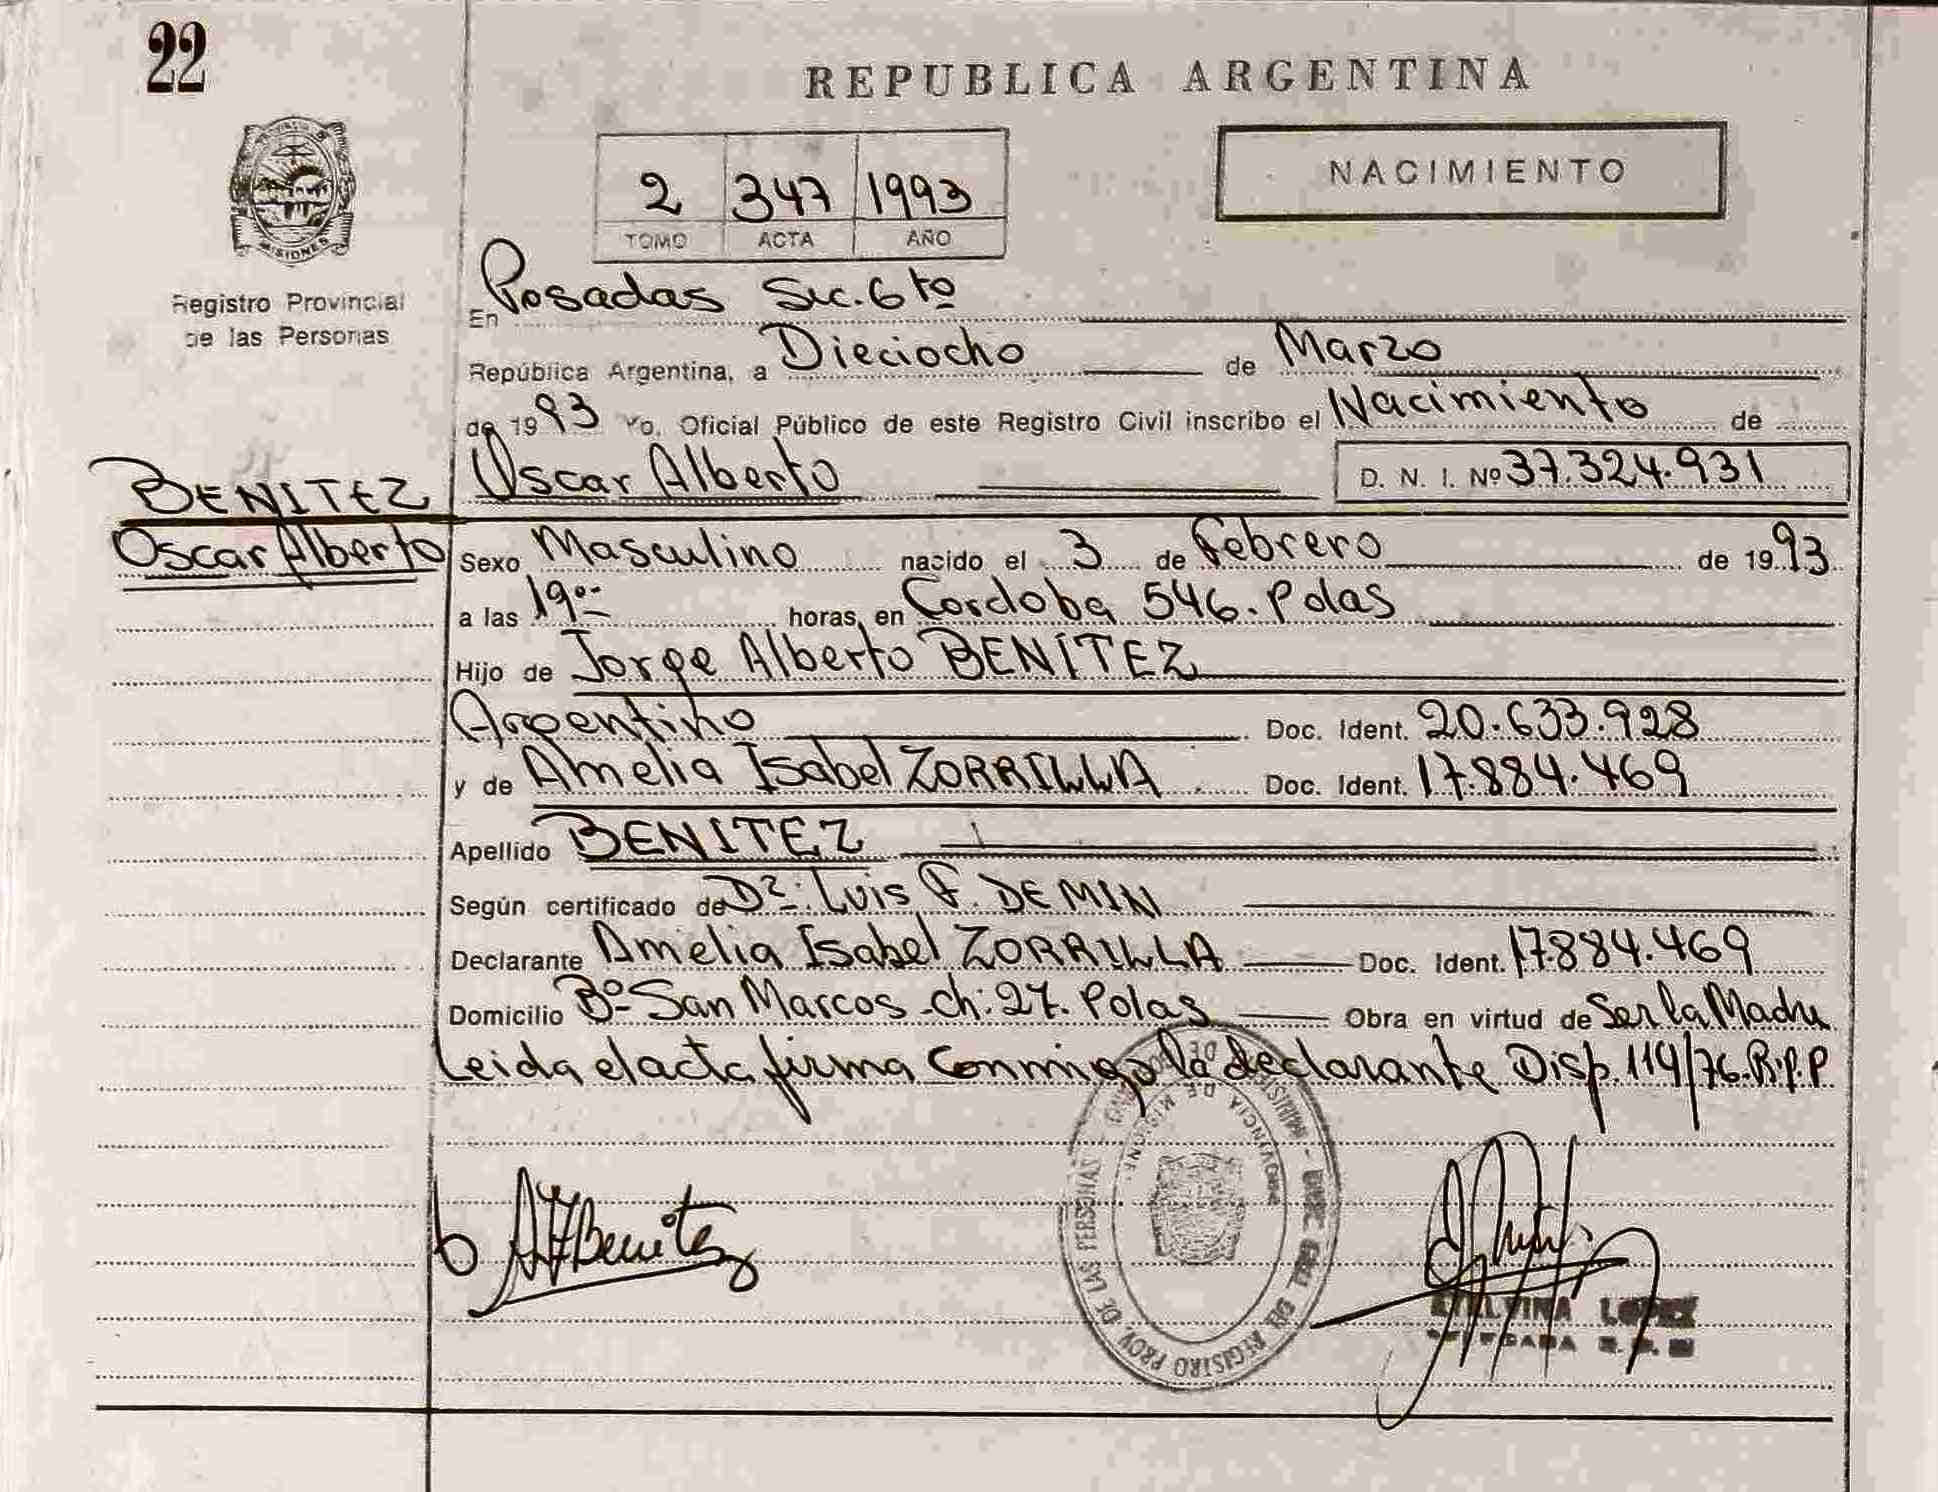 22
REPUBLICA ARGENTINA
NACIMIENTO
2 347 1993
TOMO ACTA AÑO
MISIONES
Registro Provincial
de las Personas
En Posadas Sec. 6to
República Argentina, a Dieciocho de Marzo
de 1993 Yo, Oficial Público de este Registro Civil inscribo el Nacimiento de
Oscar Alberto D. N. I. Nº 37.324.931
BENITEZ
Oscar Alberto
Sexo Masculino nacido el 3 de Febrero de 1993
a las 19oo horas, en Cordoba 546. Pdas
Hijo de Jorge Alberto BENITEZ
Argentino Doc. Ident. 20.633.928
y de Amelia Isabel ZORRILLA Doc. Ident. 17.884.469
Apellido BENITEZ
Según certificado de Dr: Luis F. DEMIN
Declarante Amelia Isabel ZORRILLA Doc. Ident. 17.884.469
Domicilio Bº San Marcos Ch: 27. Pdas Obra en virtud de Ser la Madre
Leida el acta firma Conmigo la declarante Disp. 114/76. R.P.P
Benitez
PROVINCIA DE MISIONES
DEL REGISTRO PROV. DE LAS PERSONAS
LOPEZ